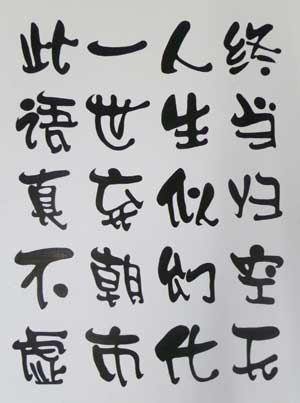 终当归空无
人生似幻化
一世弃朝市
此语真不虚